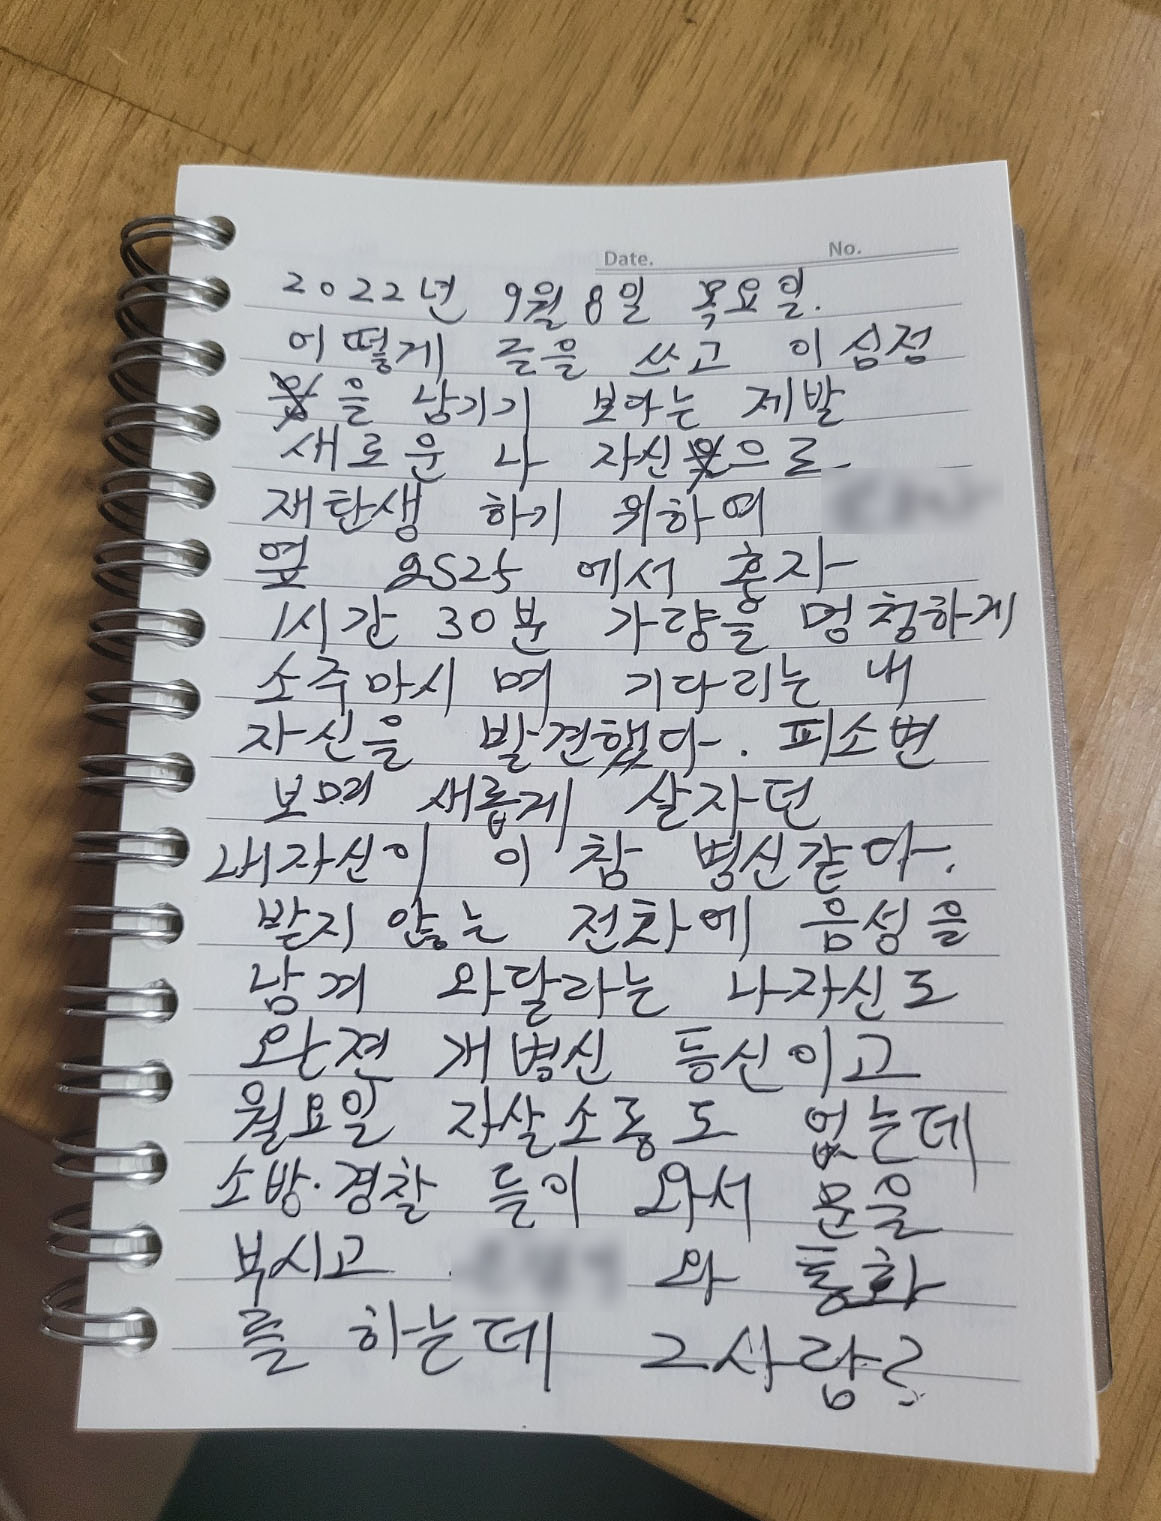 Date. No.
2022년 9월 8일 목요일.
어떻게 글을 쓰고 이심정
을 남기기 보다는 제발
새로운 나 자신으로
재탄생 하기 위하여
옆 GS25 에서 혼자
1시간 30분 가량을 멍청하게
소주마시며 기다리는 내
자신을 발견했다. 피소변
보며 새롭게 살자던
내자신이 이 참 병신같다.
받지않는 전화에 음성을
남겨 와달라는 나자신도
완전 개병신 등신이고
월요일 자살소동도 없는데
소방·경찰 들이 와서 문을
부시고 와 통화
를 하는데 그사람?